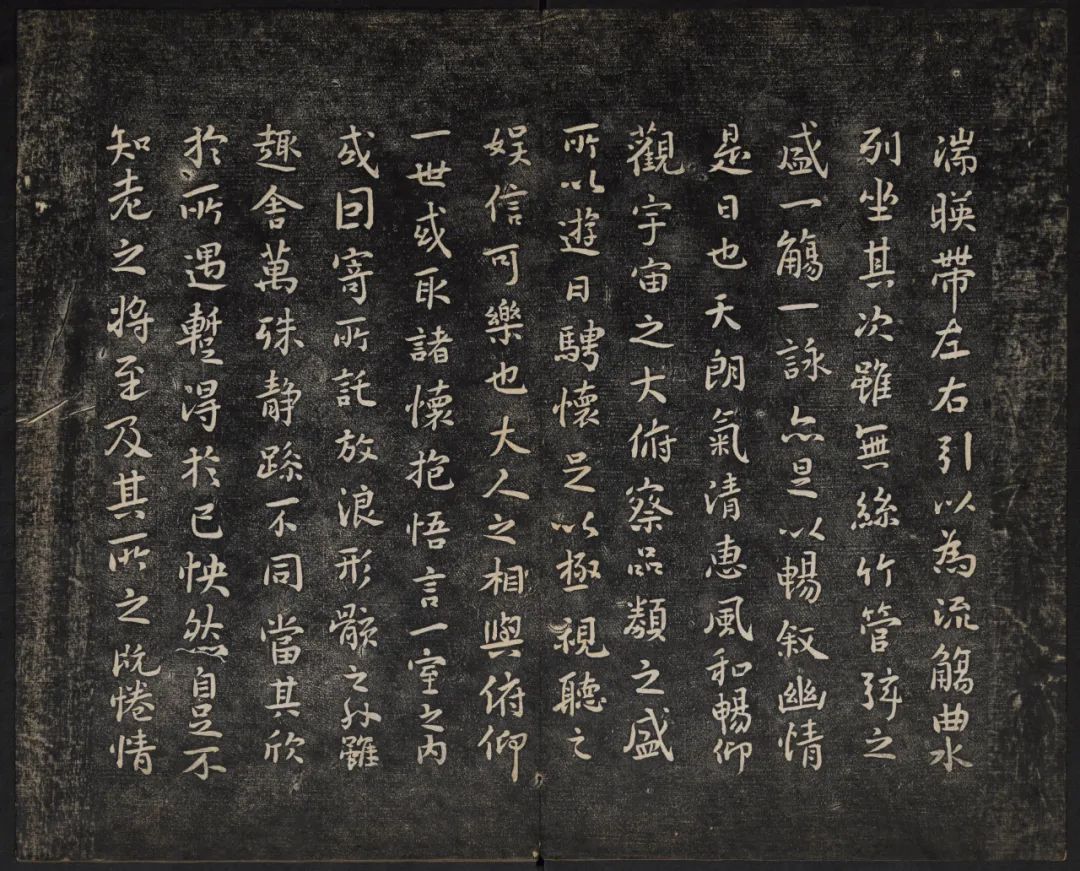 湍暎帶左右引以為流觴曲水
列坐其次雖無絲竹管弦之
盛一觴一詠亦足以暢叙幽情
是日也天朗氣清惠風和暢仰
觀宇宙之大俯察品類之盛
所以遊目騁懷足以極視聽之
娛信可樂也大人之相與俯仰
一世或取諸懷抱悟言一室之內
或因寄所託放浪形骸之外雖
趣舍萬殊静躁不同當其欣
於所遇暫得於己怏然自足不
知老之將至及其所之既惓情